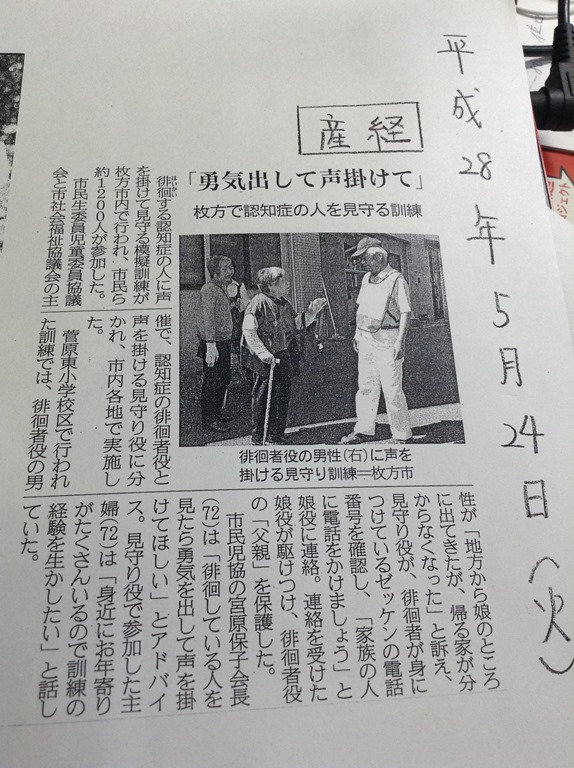 平成28年5月24日(火)
産経
「勇気出して声掛けて」
枚方で認知症の人を見守る訓練
徘徊する認知症の人に声
を掛けて見守る模擬訓練が
枚方市内で行われ、市民ら
約1200人が参加した。
市民生委員児童委員協議
会と市社会福祉協議会の主
催で、認知症の徘徊者役と
声を掛ける見守り役に分
かれ、市内各地で実施し
た。
菅原東小学校区で行われ
た訓練では、徘徊者役の男
徘徊者役の男性(右)に声を
掛ける見守り訓練=枚方市
性が「地方から娘のところ
に出てきたが、帰る家が分
からなくなった」と訴え、
見守り役が、徘徊者が身に
つけているゼッケンの電話
番号を確認し、「家族の人
に電話をかけましょう」と
娘役に連絡。連絡を受けた
娘役が駆けつけ、徘徊者役
の「父親」を保護した。
市民児協の宮原保子会長
(72)は「徘徊している人を
見たら勇気を出して声を掛
けてほしい」とアドバイ
ス。見守り役で参加した主
婦(72)は「身近にお年寄り
がたくさんいるので訓練の
経験を生かしたい」と話し
ていた。